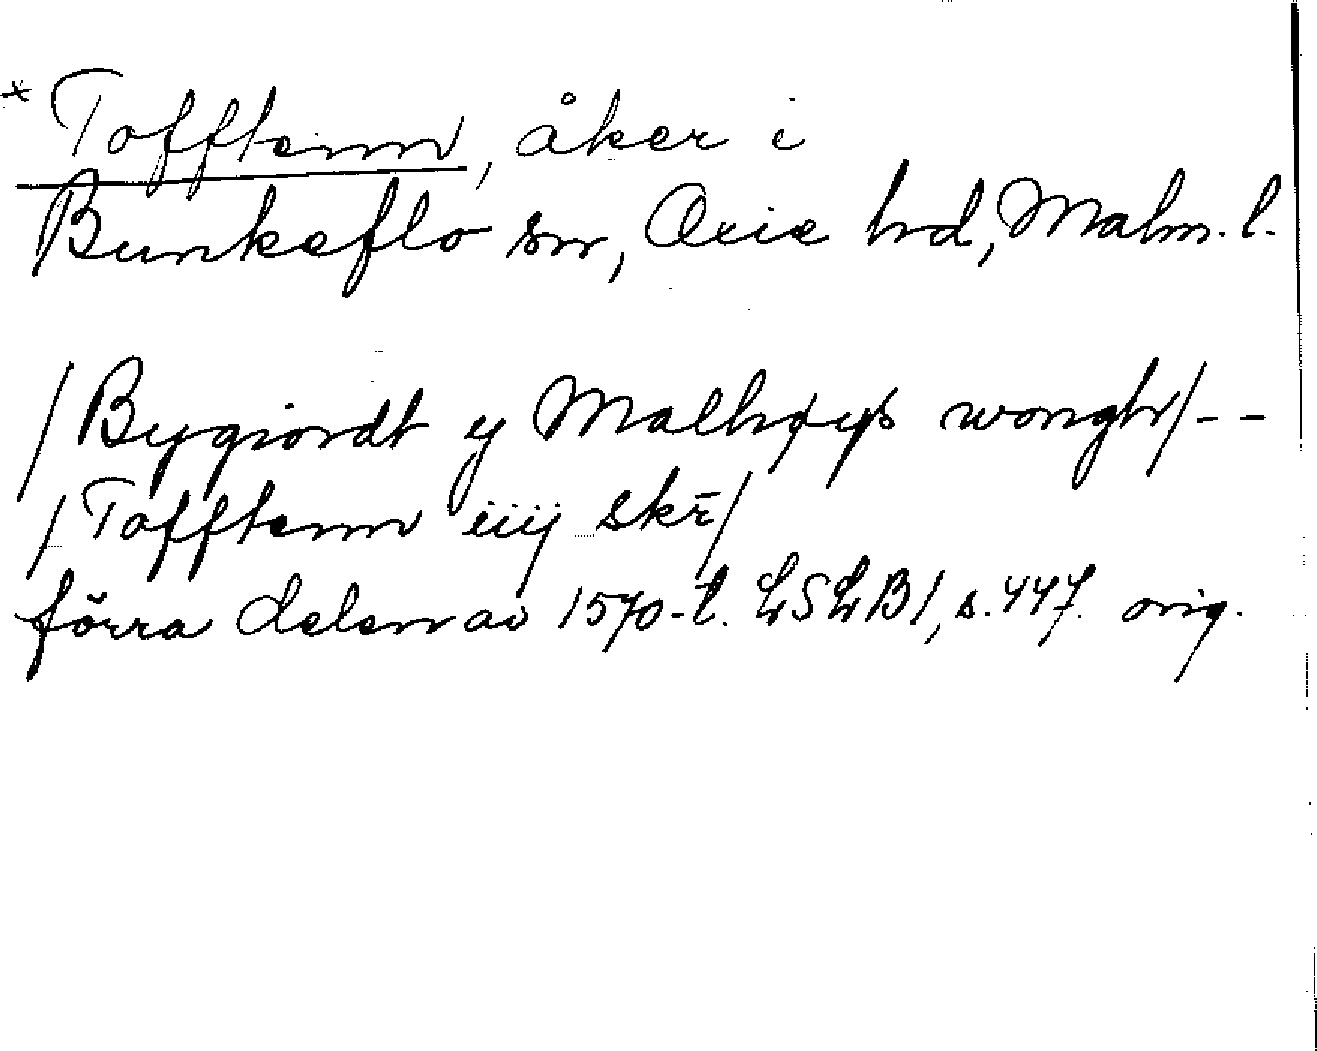 * Tofftenn, åker i
Bunkeflo sn, Oxie hd, Malm. l.
/Bygiordt y Malhøys wongh/--
/Tofftenn iiij skr̄/
förra delen av 1570-t. LSLB1, s.447. orig.